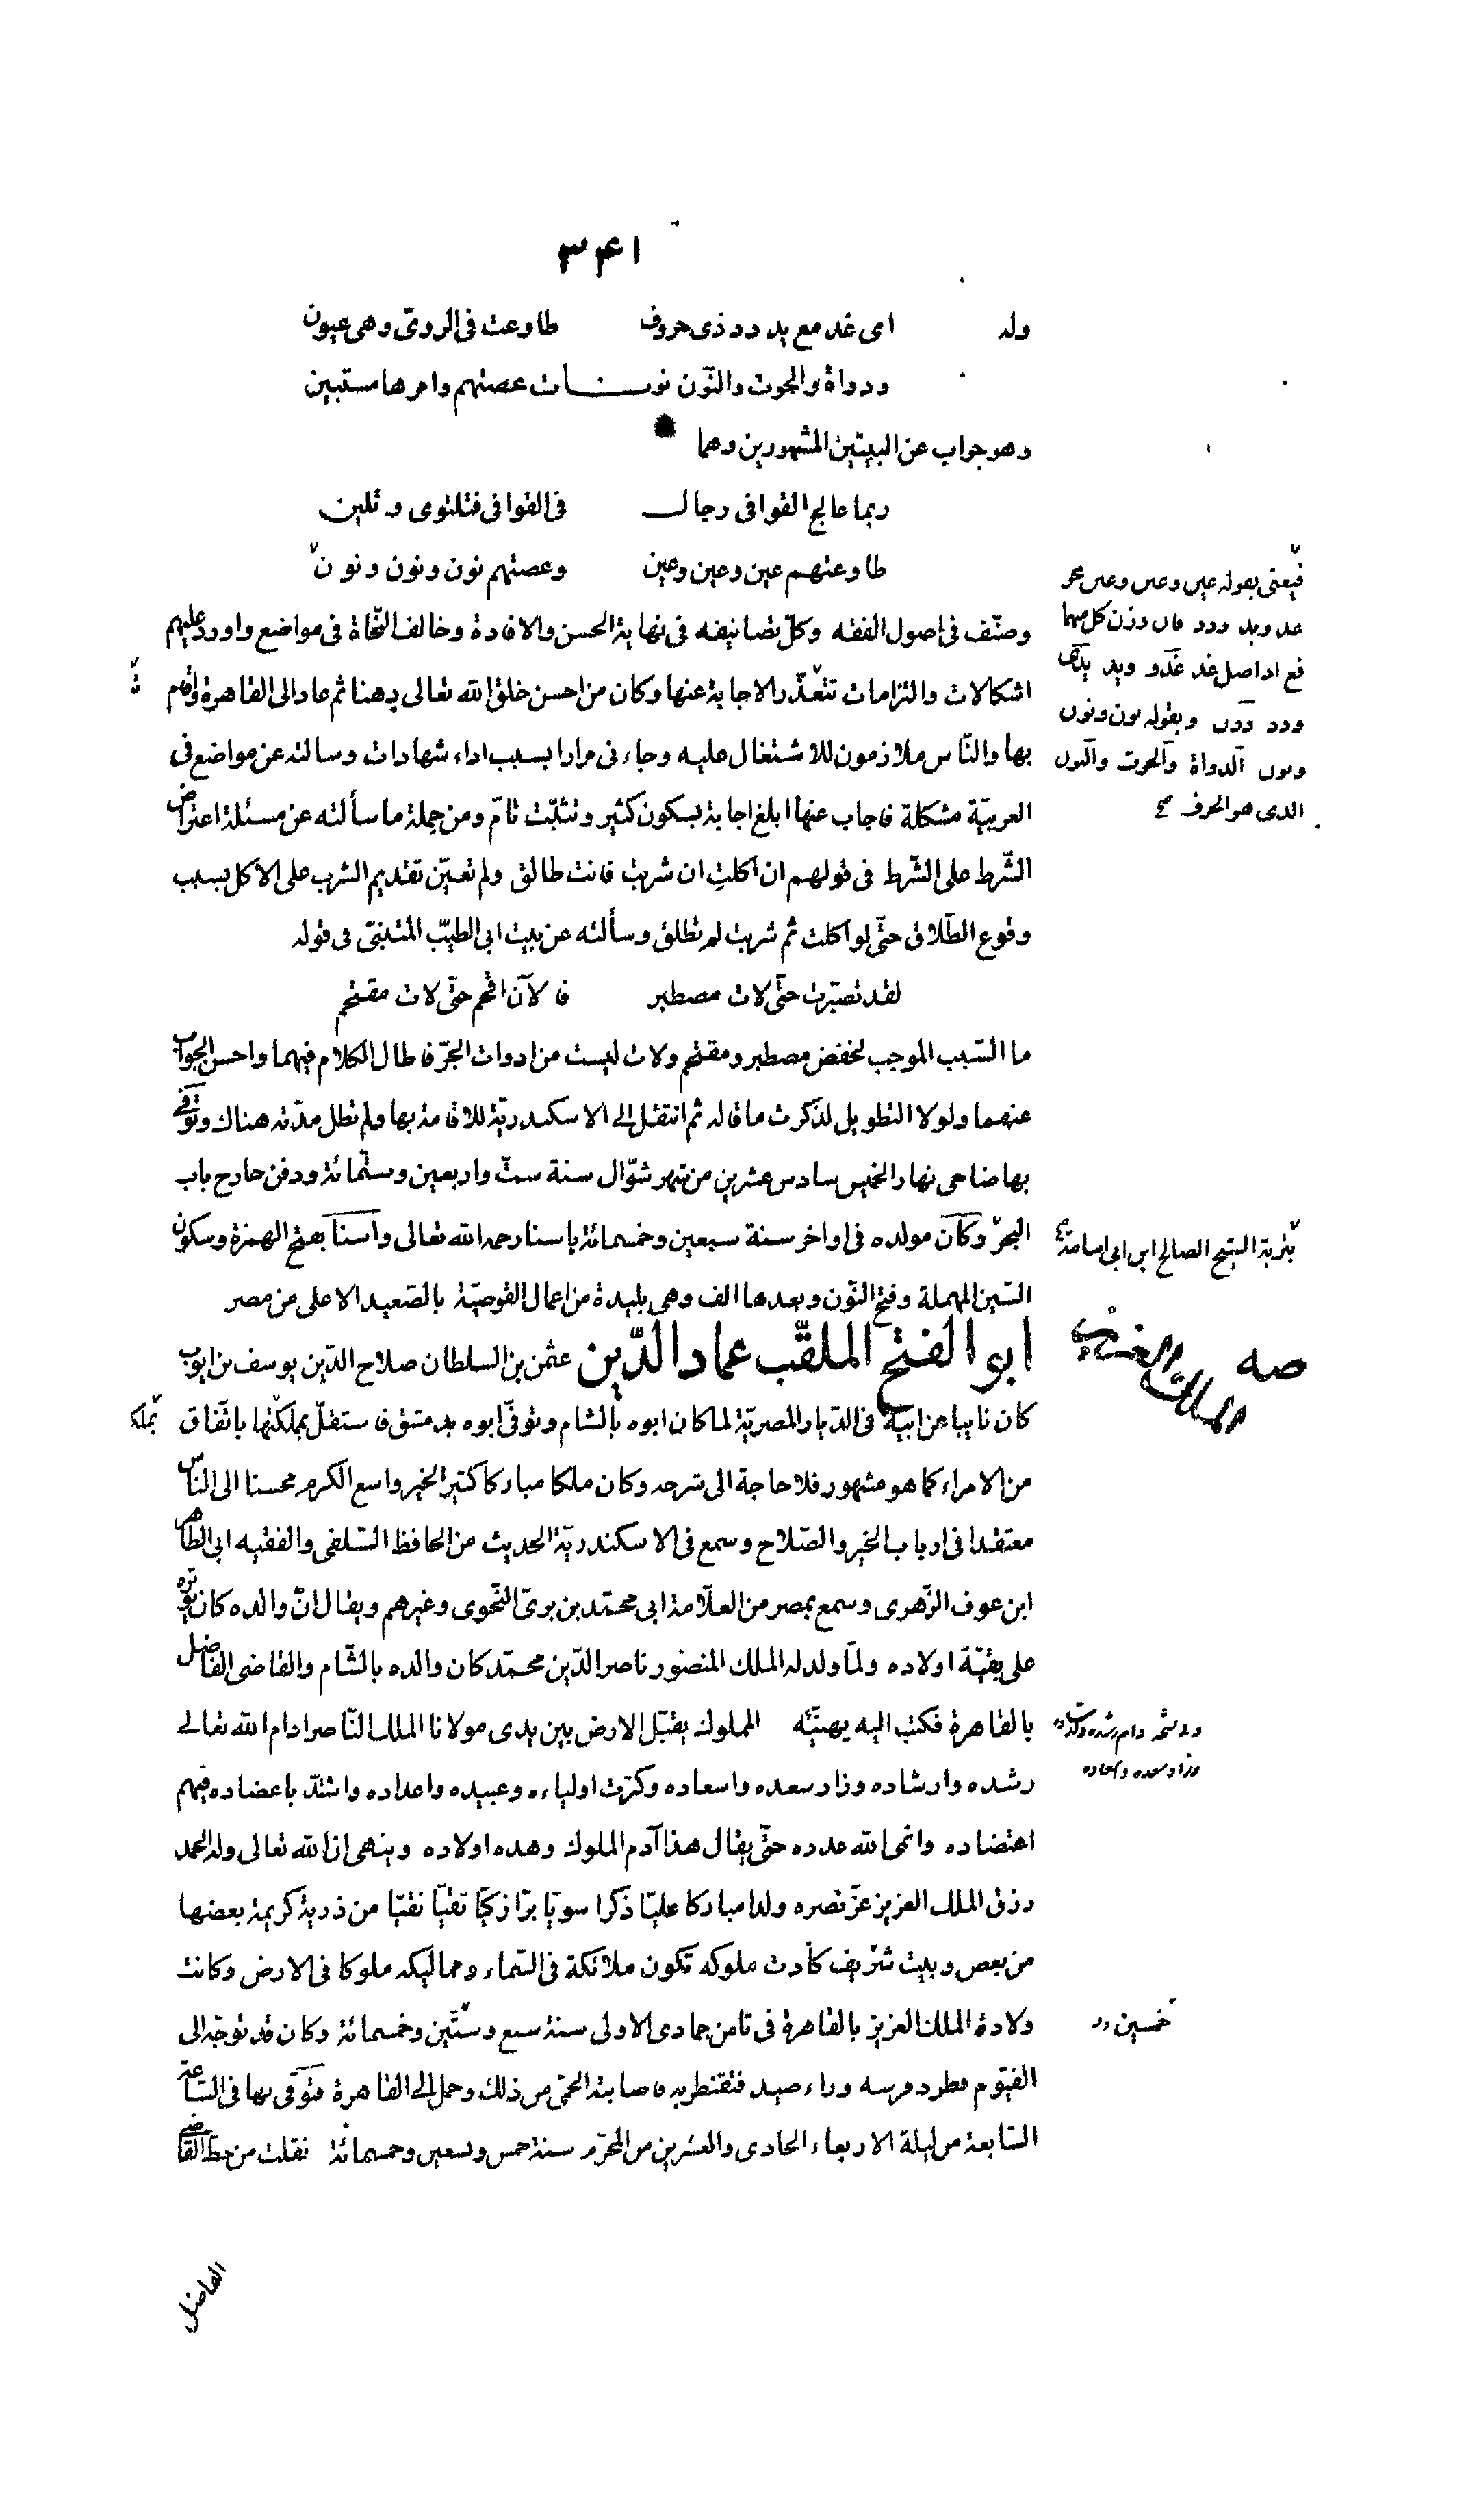 ٣٤١
وله اى غد مع يد دد ذى حروف طاوعت فى الروىّ وهى عيون
ودواة والحوت والنّون نونات عصتهم وامرها مستبين
وهو جواب عن البيتين المشهورين وهما
ربما عالج القوافى رجال فى القوافى فتلتوى وتلين
طاوعتهم عين وعين وعين وعصتهم نون ونون ونون
وصنّف فى اصول الفقه وكلّ تصانيفه فى نهاية الحسن والافادة وخالف النّحاة فى مواضع واورد عليهم
اشكالات والتزامات تتعذّر الاجابة عنها وكان من احسن خلق الله تعالى ذهنا ثم عاد الى القاهرة واقام
بها والنّاس ملازمون للاشتغال عليه وجاءنى مرارا بسبب اداء شهادات وسالته عن مواضع فى
العربيّة مشكلة فاجاب عنها ابلغ اجابة بسكون كثير وتثبّت تامّ ومن جملة ما سألته عن مسئلة اعتراض
الشّرط على الشّرط فى قولهم ان اكلت ان شربت فانت طالق ولم تعيّن تقديم الشرب على الاكل بسبب
وقوع الطّلاق حتّى لو اكلت ثم شربت لم تطلق وسألته عن بيت ابى الطيّب المتنبّى فى قوله
لقد تصبّرت حتّى لات مصطبر فالآن اقحم حتّى لات مقتحم
ما السّبب الموجب لخفض مصطبر ومقتحم ولات ليست من ادوات الجرّ فاطال الكلام فيهما واحسن الجواب
عنهما ولولا التطويل لذكرت ما قاله ثم انتقل الى الاسكندريّة للاقامة بها ولم تطل مدّته هناك وتوفّى
بها ضاحى نهار الخميس سادس عشرين من شهر شوّال سنة ستّ واربعين وستّمائة ودفن خارج باب
البحر وكان مولده فى اواخر سنة سبعين وخمسمائة باسنا رحمه الله تعالى واسنا بفتح الهمزة وسكون
السّين المهملة وفتح النّون وبعدها الف وهى بليدة من اعمال القوصيّة بالصّعيد الاعلى من مصر
ابو الفتح الملقّب عماد الدّين عثمن بن السلطان صلاح الدّين يوسف بن ايوب
كان نايبا عن ابيه فى الدّيار المصريّة لما كان ابوه بالشام وتوفّى ابوه بدمشق فاستقلّ بملكتها باتّفاق
من الامراء كما هو مشهور فلا حاجة الى شرحه وكان ملكا مباركا كثير الخير واسع الكرم محسنا الى الناس
معتقدا فى ارباب الخير والصّلاح وسمع فى الاسكندريّة الحديث من الحافظ السّلفى والفقيه ابى الطاهر
ابن عوف الزّهرى وسمع بمصر من العلّامة ابى محمّد بن برىّ النّحوى وغيرهم ويقال انّ والده كان يؤثره
على بقيّة اولاده ولمّا ولد له الملك المنصور ناصر الدّين محمّد كان والده بالشّام والقاضى الفاضل
بالقاهرة فكتب اليه يهنّئه المملوك يقبّل الارض بين يدى مولانا الملك النّاصر ادام الله تعالى
رشده وارشاده وزاد سعده واسعاده وكثرت اولياءه وعبيده واعداده واشتدّ باعضاده فيهم
اعتضاده وانمى الله عدده حتّى يقال هذا آدم الملوك وهذه اولاده وينهى ان الله تعالى وله الحمد
رزق الملك العزيز عزّ نصره ولدا مباركا عليّا ذكرا سويّا برّا زكيّا تقيّا نقيّا من ذرية كريمة بعضها
من بعض وبيت شريف كادت ملوكه تكون ملائكة فى السّماء ومماليكه ملوكا فى الارض وكانت
ولادة الملك العزيز بالقاهرة فى ثامن جمادى الاولى سنة سبع وستّين وخمسمائة وكان قد توجّه الى
الفيّوم فطرد فرسه وراء صيد فتقنطر به فاصابته الحمّى من ذلك وحمل الى القاهرة فتوفّى بها فى السّاعة
السّابعة من ليلة الاربعاء الحادى والعشرين من المحرّم سنة خمس وتسعين وخمسمائة نقلت من خط القاضى
الفاضل
فيعنى بقوله عين وعين وعين نحو
غد ويد ودد فان وزن كل منها
فع اذ اصل غد غدو ويد يدى
ودد ددن وبقوله نون ونون
ونون الدواة والحوت والنون
الذى هو الحرف صح
بتربة الشيخ الصالح ابن ابى اسامة
صه الملك العزيز
وزاد سعده واسعاده
خمسين